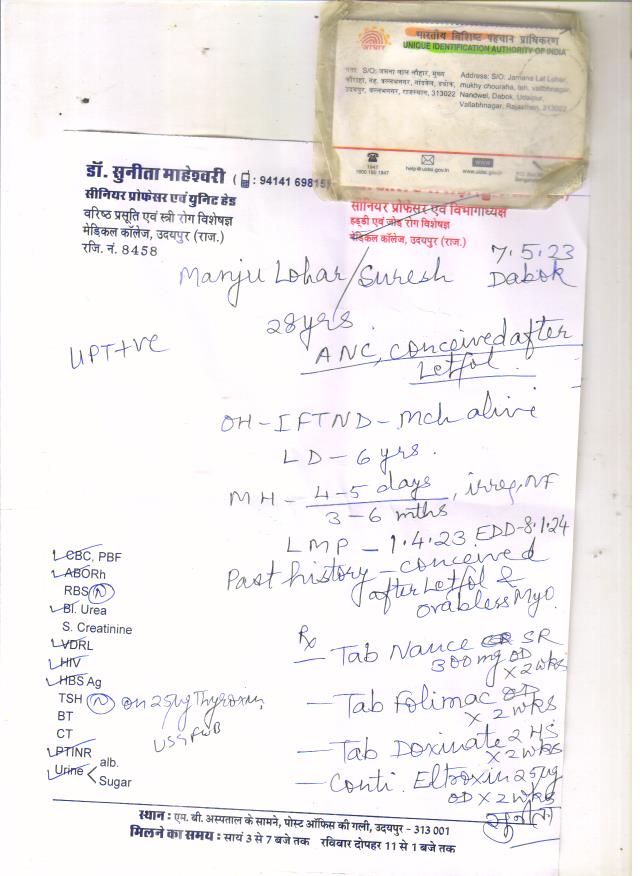 भारतीय विशिष्ट पहचान प्राधिकरण
UNIQUE IDENTIFICATION AUTHORITY OF INDIA
आधार
S/O: जमना लाल लौहार, मुख्य
उदयपुर, वल्लभनगर, राजस्थान, 313022
Address: S/O: Jamana Lal Lohar,
mukhy chouraha, teh. vallbhnagar,
Nandwel, Dabok, Udaipur,
Vallabhnagar, Rajasthan, 313022
1947
1800 180 1947
help@uidai.gov.in
www
www.uidai.gov.in
डॉ. सुनीता माहेश्वरी ( : 94141 69815)
सीनियर प्रोफेसर एवं युनिट हेड
वरिष्ठ प्रसूति एवं स्त्री रोग विशेषज्ञ
मेडिकल कॉलेज, उदयपुर (राज.)
रजि. नं. 8458
सीनियर प्रोफेसर एवं विभागाध्यक्ष
हड्डी एवं जोड़ रोग विशेषज्ञ
मेडिकल कॉलेज, उदयपुर (राज.)
7.5.23
Manju Lohar/Suresh Dabok
28yrs.
UPT+ve
ANC, conceived after
Letfol.
OH - IFTND - Mch alive
LD - 6 yrs.
MH - 4-5 days / 3-6 mths, irreg, NF
LMP - 1.4.23 EDD-8.1.24
Past history - conceived
after Letfol &
ovabless Myo.
CBC, PBF
ABORh
RBS (N)
Bl. Urea
S. Creatinine
VDRL
HIV
HBS Ag
TSH (N) on 25µg Thyroxin,
BT
USG FWB
CT
PTINR
Urine < alb.
Sugar
Rx
- Tab Nance SR
300mg OD
x 2 wks
- Tab Folimac OD
x 2 wks
- Tab Doxinate 2 HS
x 2 wks
- Conti. Eltroxin 25µg
OD x 2 wks
स्थान : एम. बी. अस्पताल के सामने, पोस्ट ऑफिस की गली, उदयपुर - 313 001
मिलने का समय : सायं 3 से 7 बजे तक रविवार दोपहर 11 से 1 बजे तक